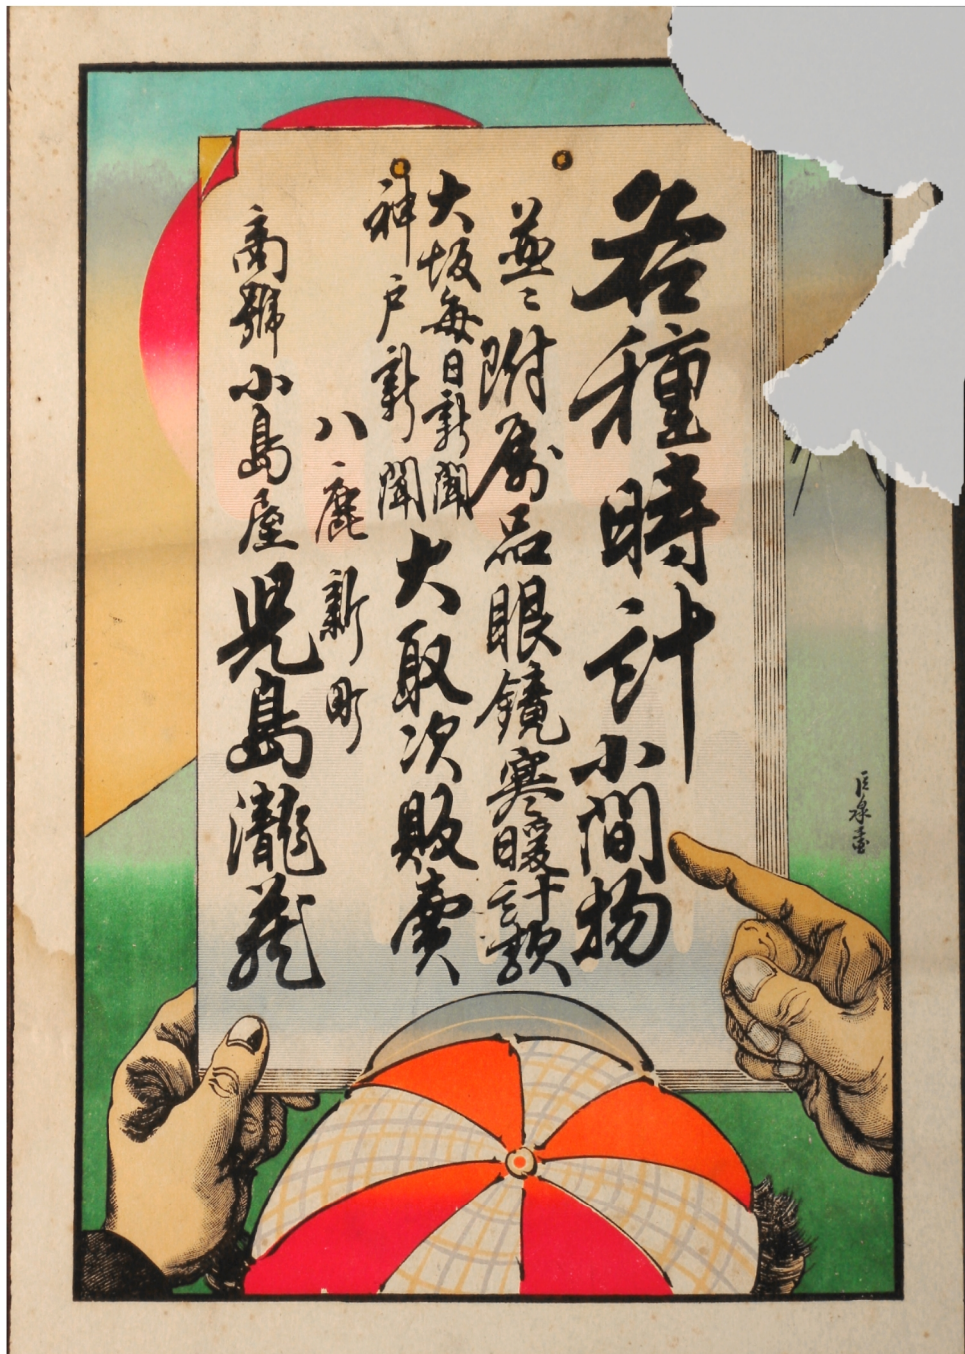 各種時計小間物
並ニ附属品眼鏡寒暖計類
大坂毎日新聞
神戸新聞
大取次販賣
八鹿新町
商號小島屋児島瀧蔵